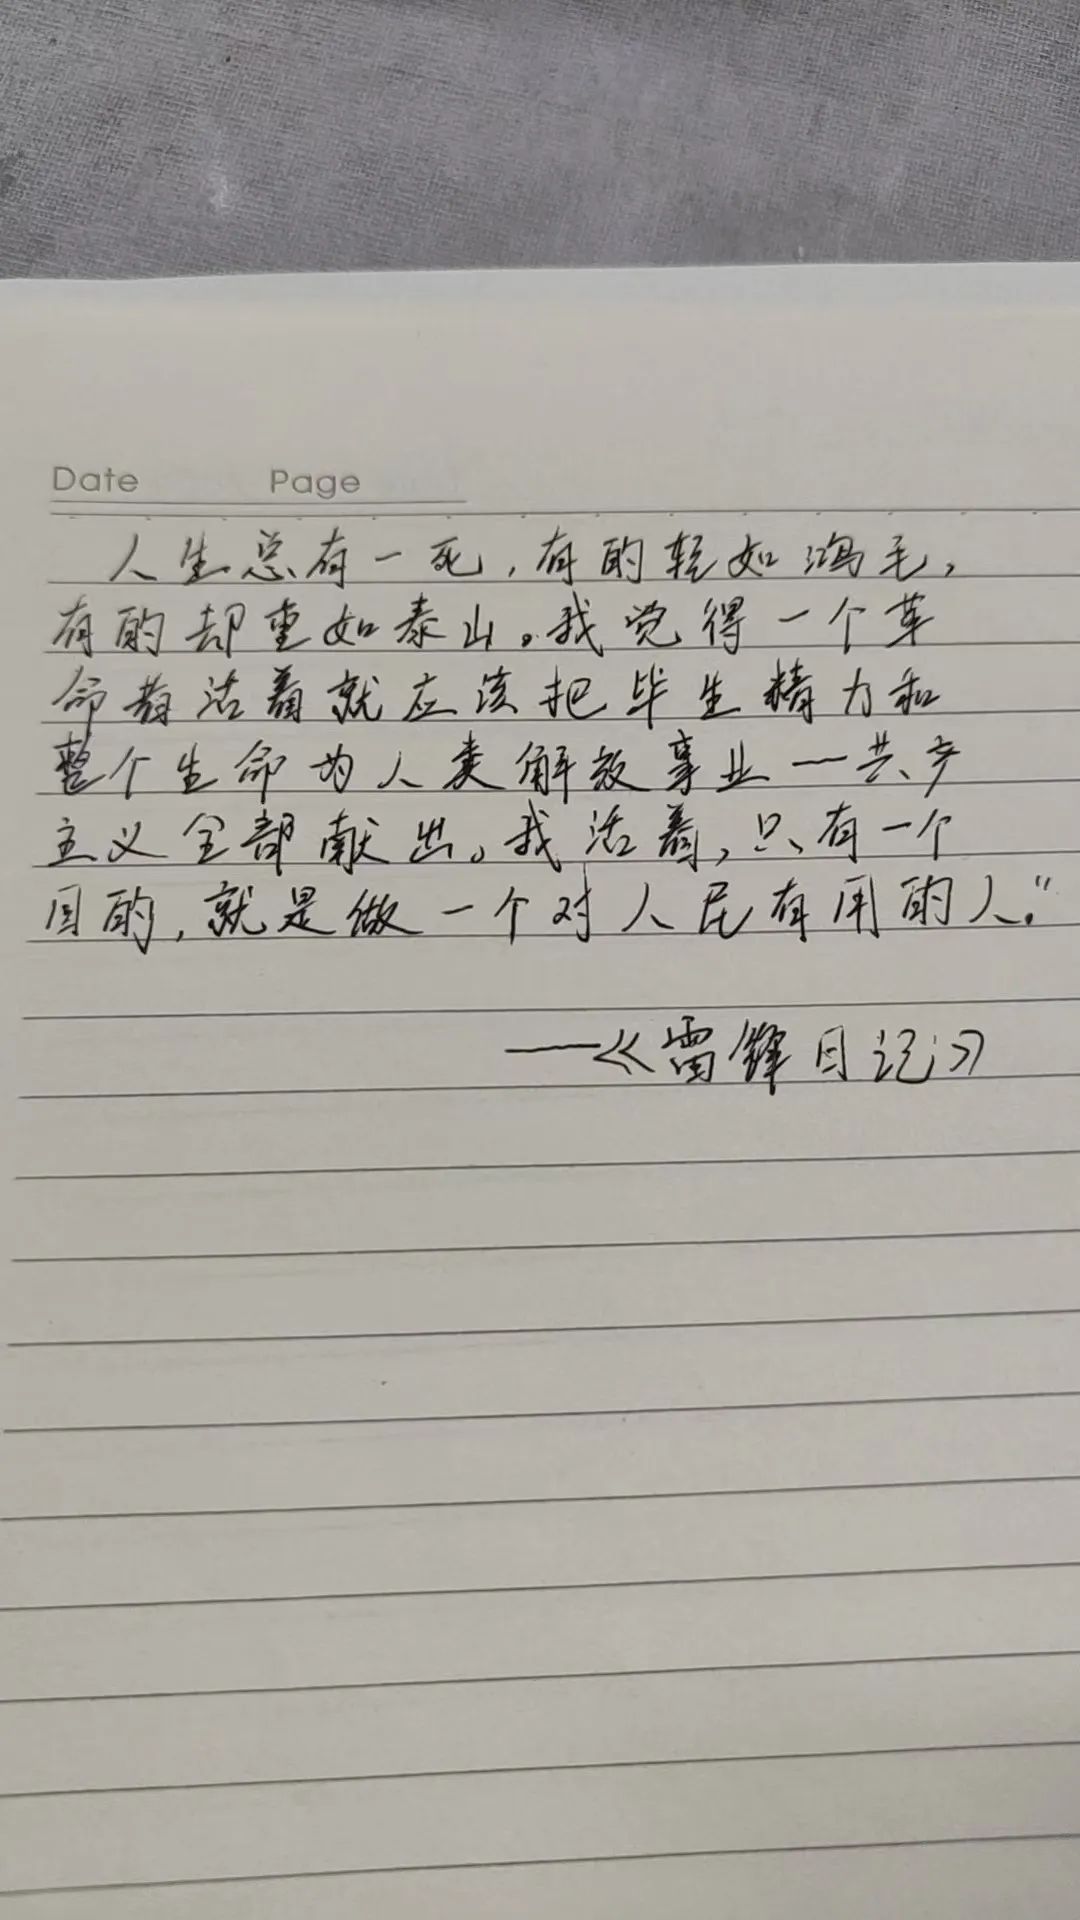 Date Page
人生总有一死,有的轻如鸿毛,
有的却重如泰山。我觉得一个革
命者活着就应该把毕生精力和
整个生命为人类解放事业一共产
主义全部献出。我活着,只有一个
目的,就是做一个对人民有用的人。"
——《雷锋日记》